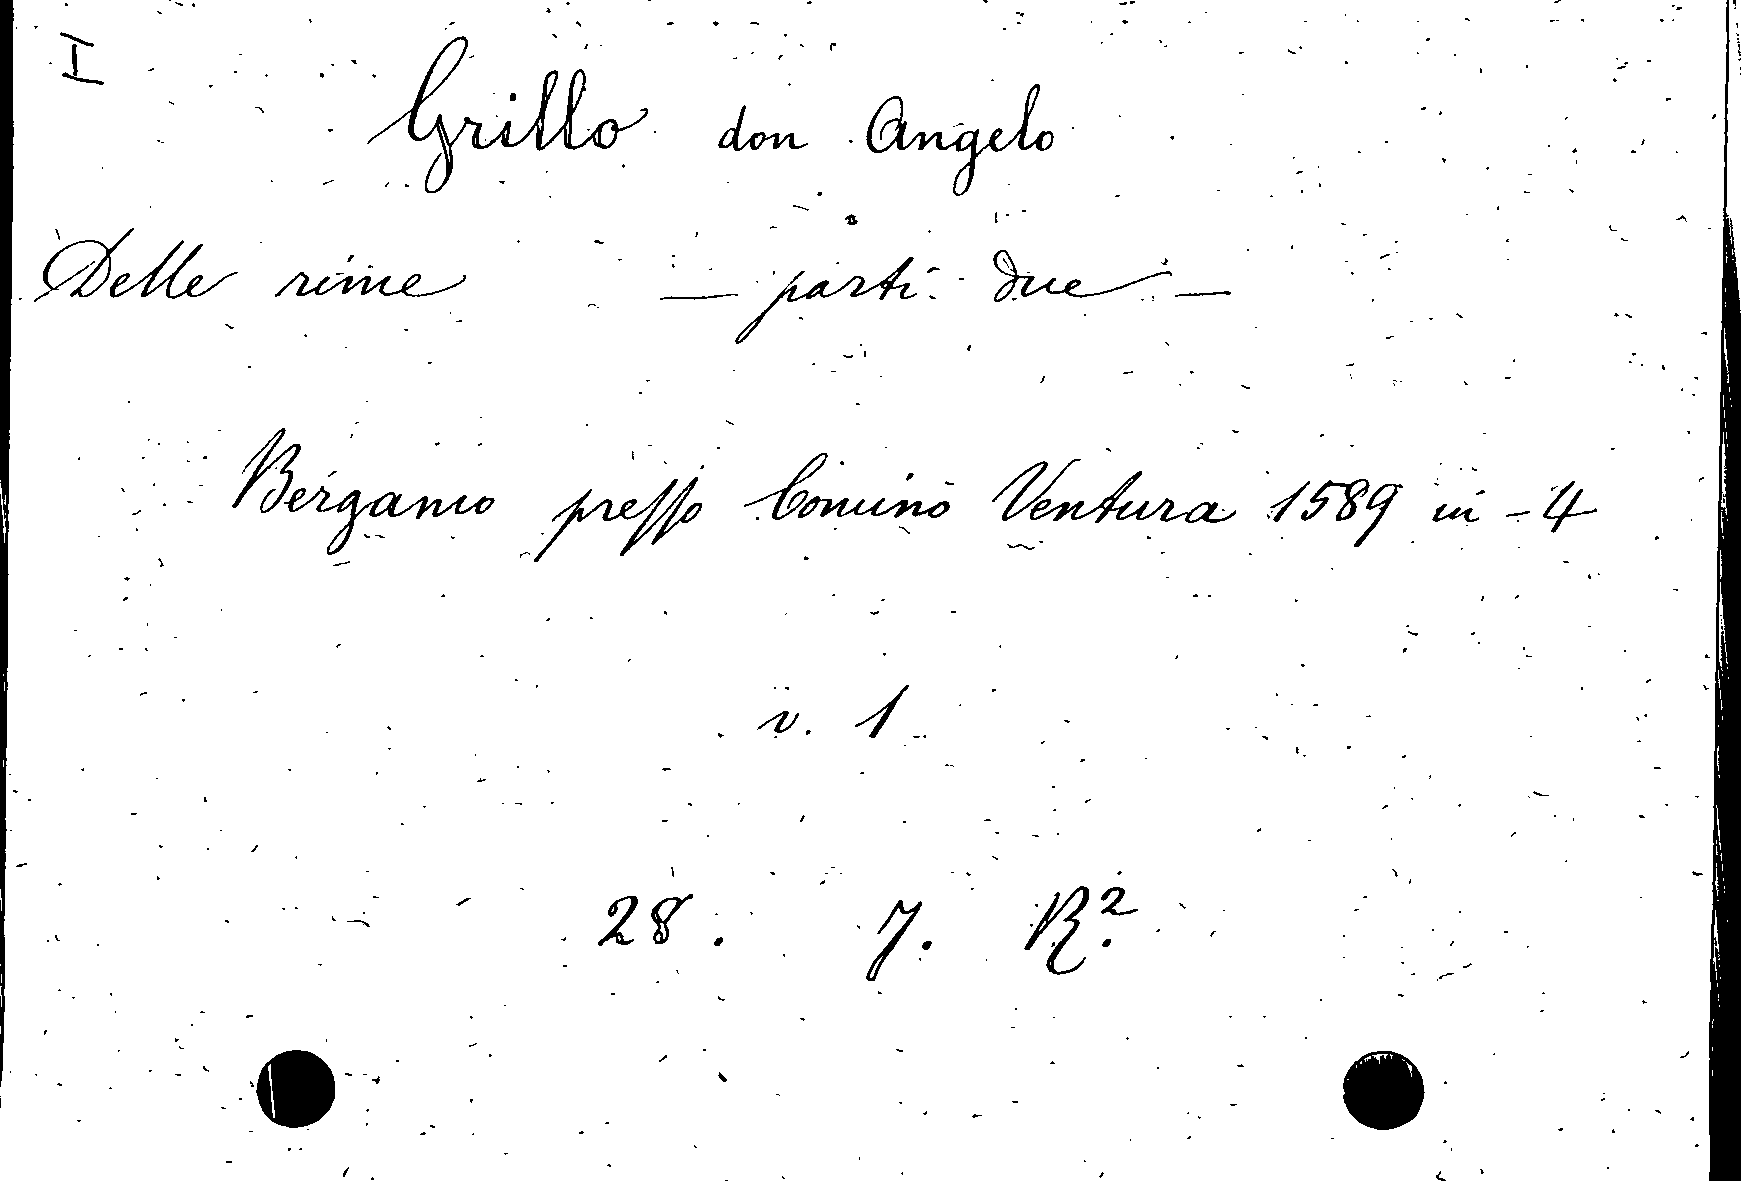 I
Grillo don Angelo
Delle rime — parti due —
Bergamo presso Comino Ventura 1589 in-4
v. 1
28. 7. R².